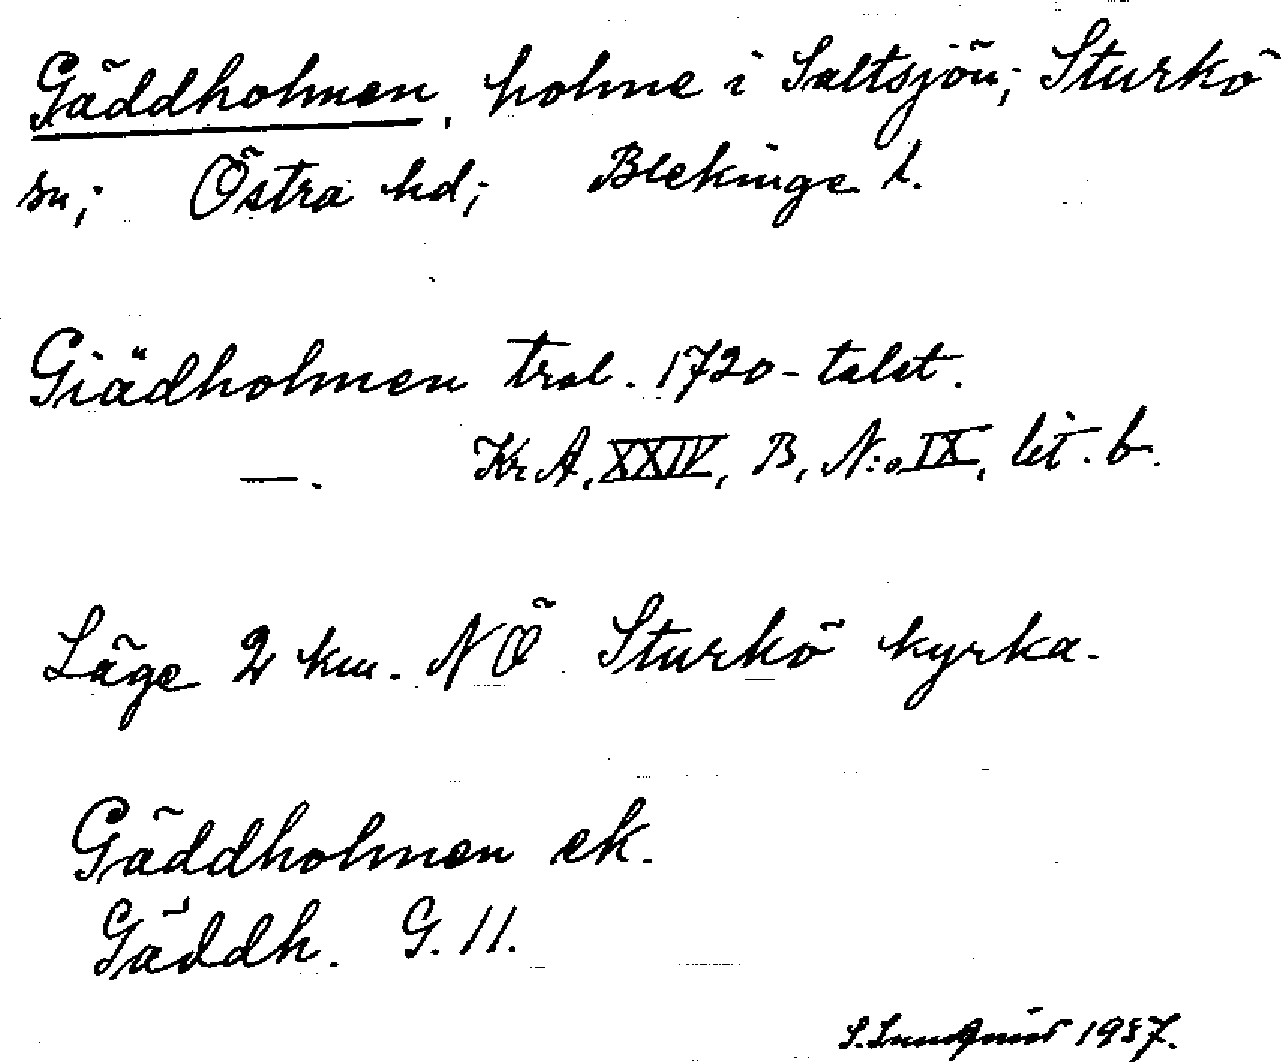 Gäddholmen, holme i Saltsjön; Sturkö
sn; Östra hd; Blekinge l.
Giädholmen trol. 1720-talet.
—. KrA, XXIV, B, N:o IX, lit. b.
Läge 2 km. NÖ Sturkö kyrka.
Gäddholmen ek.
Gäddh. G. 11.
1937.